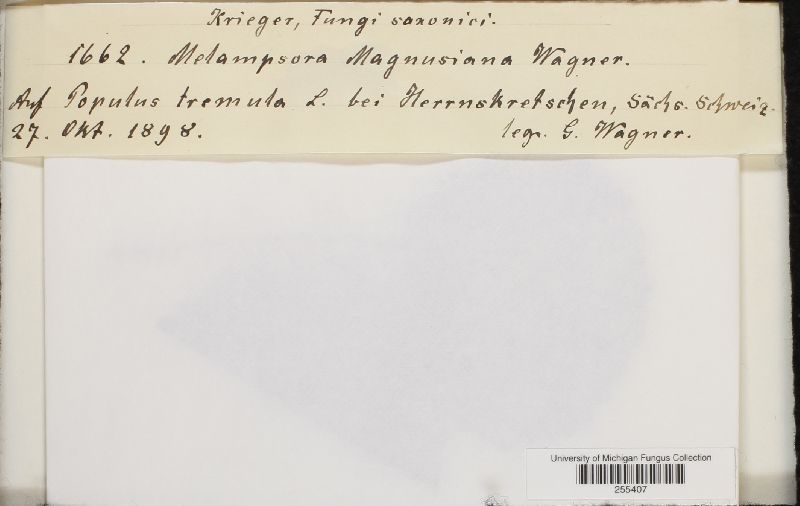 Krieger, Fungi saxonici.
1662. Melampsora Magnusiana Wagner.
Auf Populus tremula L. bei Herrnskretschen, Sächs. Schweiz.
27. Okt. 1898. leg. G. Wagner.
University of Michigan Fungus Collection
255407